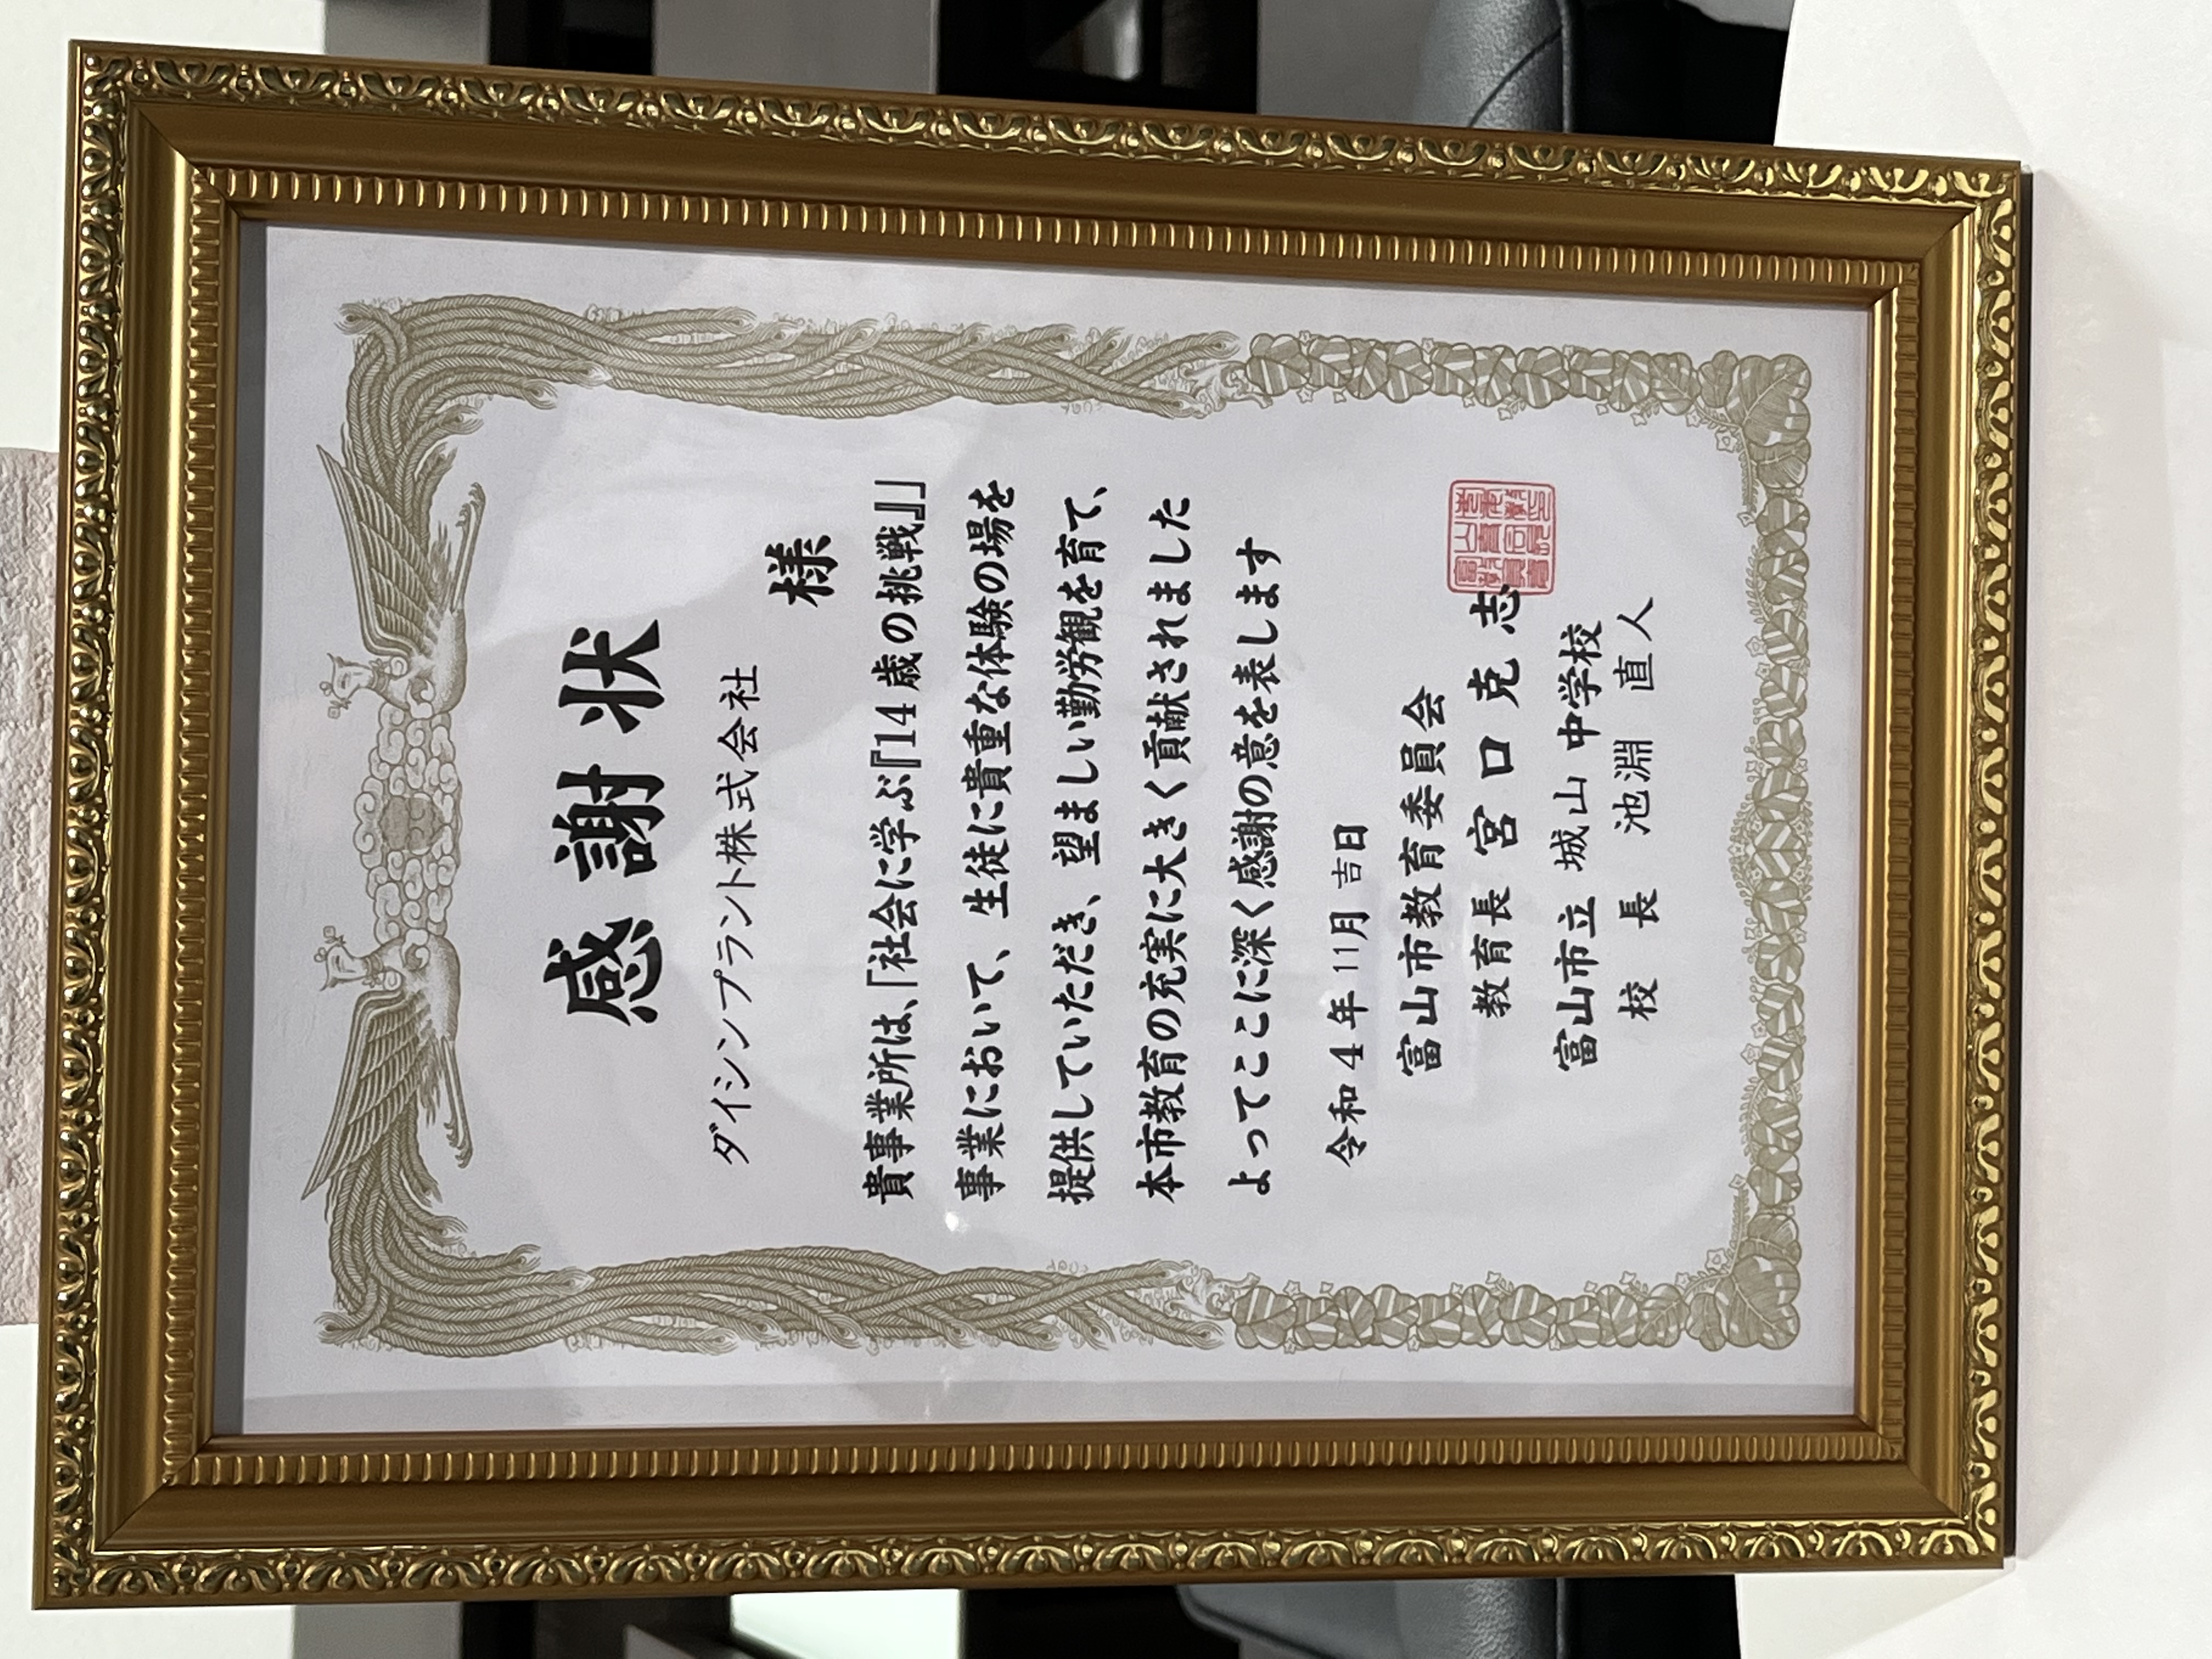 感謝状
ダイシンプラント株式会社
様
貴事業所は、「社会に学ぶ『14歳の挑戦』」
事業において、生徒に貴重な体験の場を
提供していただき、望ましい勤労観を育て、
本市教育の充実に大きく貢献されました
よってここに深く感謝の意を表します
令和4年11月吉日
富山市教育委員会
教育長 宮口克志
富山市立 城山 中学校
校長 池淵 直人